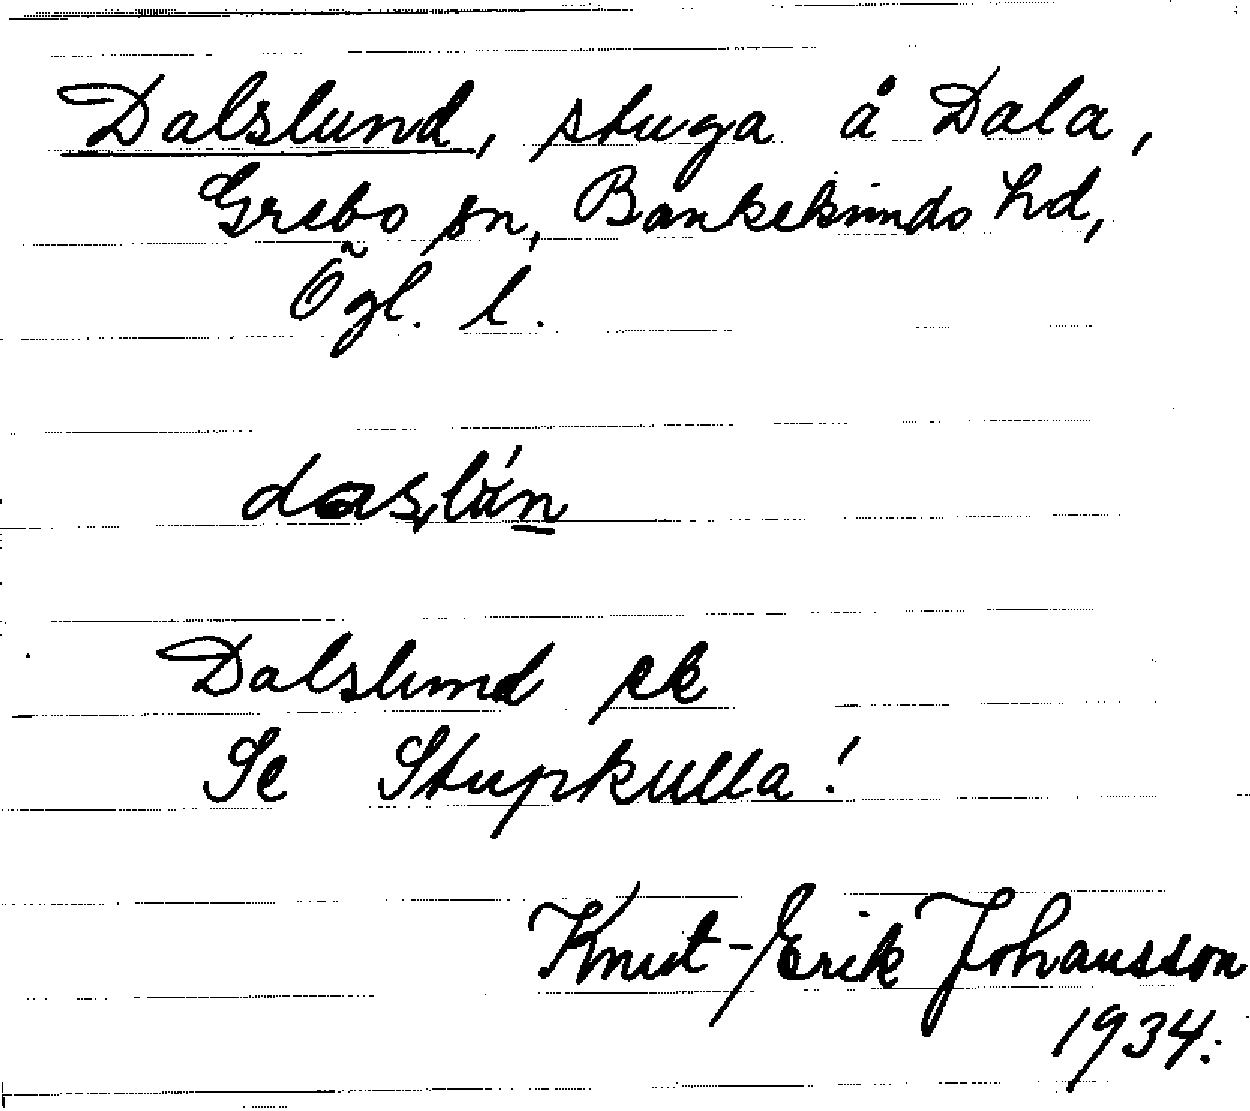 Dalslund, stuga å Dala,
Grebo sn, Bankekinds hd,
Ögl. l.
Dalslund ek
Se Stupkulla!
Knut-Erik Johansson
1934.